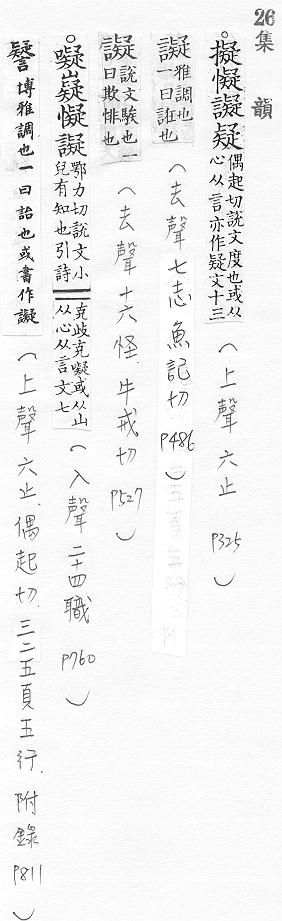 26
集韻
。擬懝譺疑偶起切說文度也或从心从言亦作疑文十三（上聲六止 P325）
譺雅調也一曰誑也（去聲七志魚記切 P486）
譺說文騃也一曰欺悱也（去聲十六怪牛戒切 P527）
。嶷懝譺鄂力切說文小兒有知也引詩克歧克嶷或从山从心从言文七（入聲二十四職 P760）
譺博雅調也一曰詒也或書作譺（上聲六止偶起切三二五頁五行附錄 P811）